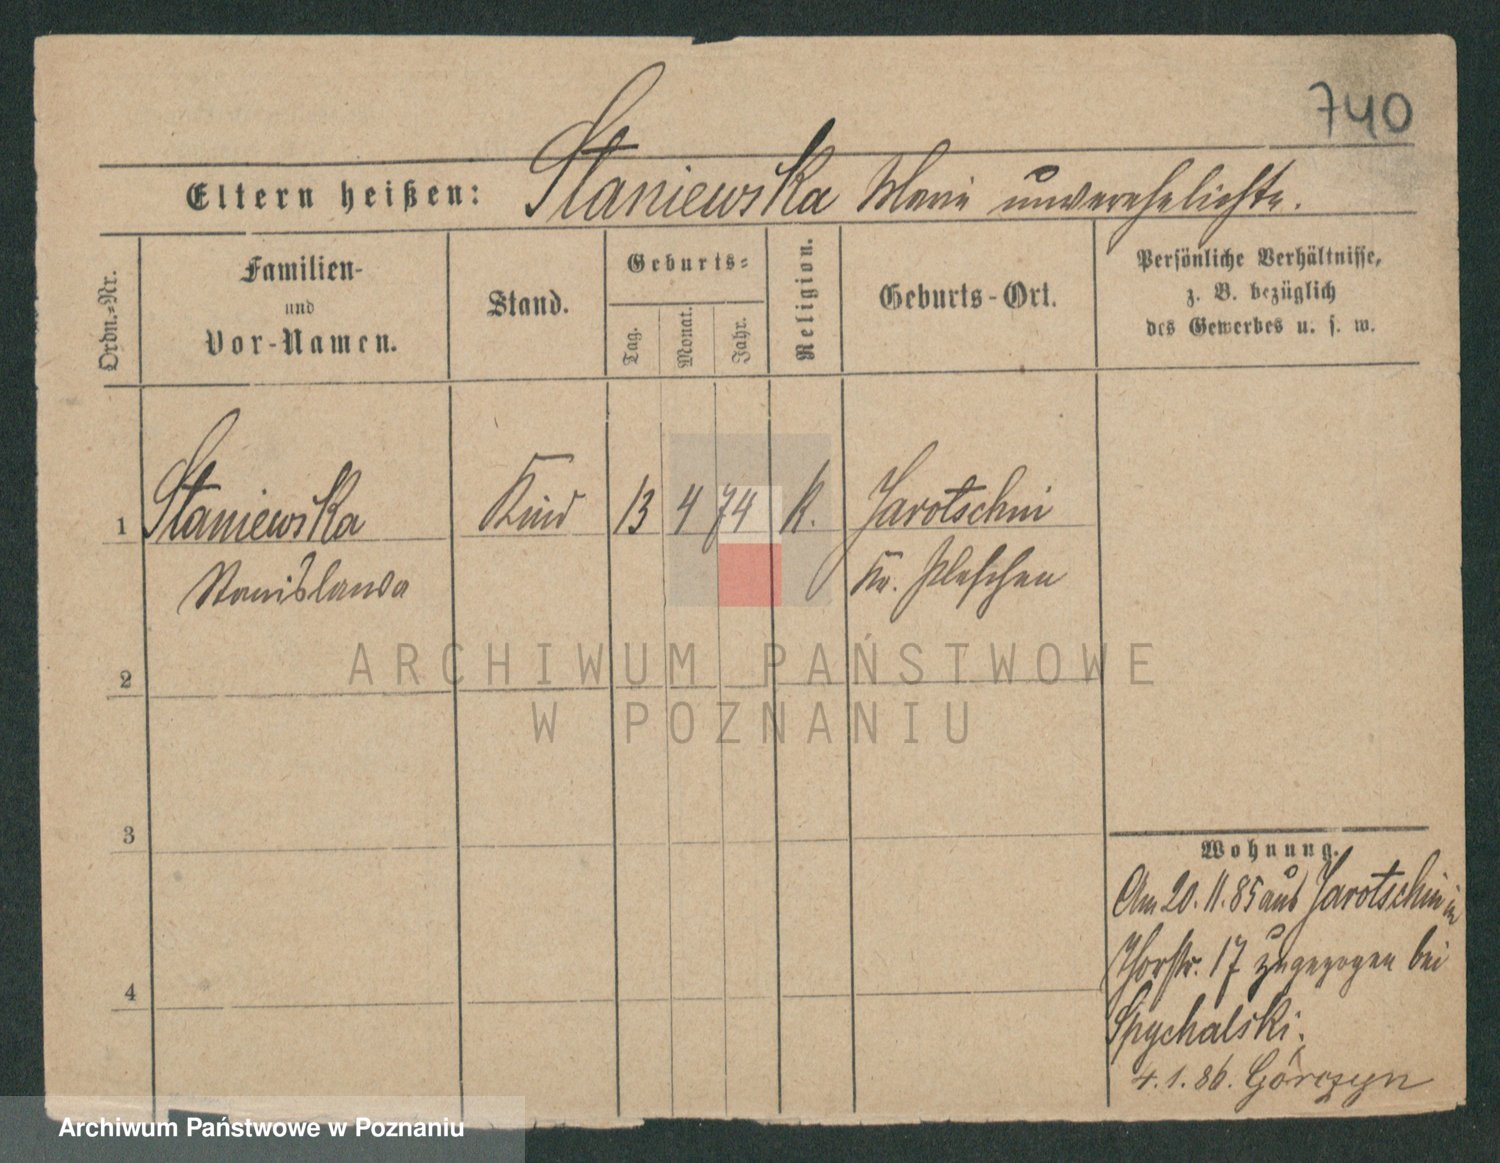 740
Eltern heißen: Staniewska Marie unverehelichte.
Ordn.-Nr.
Familien-
und
Vor-Namen.
Stand.
Geburts-
Tag.
Monat.
Jahr.
Religion.
Geburts-Ort.
Persönliche Verhältnisse,
z. B. bezüglich
des Gewerbes u. s. w.
1 Staniewska Kind 13 4 74 K. Jarotschin
Stanislawa Kr. Pleschen
2
3
4
Wohnung.
Am 20.11.85 aus Jarotschin in
17 zugezogen bei
Spychalski.
4.1.86. Górczyn
ARCHIWUM PAŃSTWOWE
W POZNANIU
Archiwum Państwowe w Poznaniu